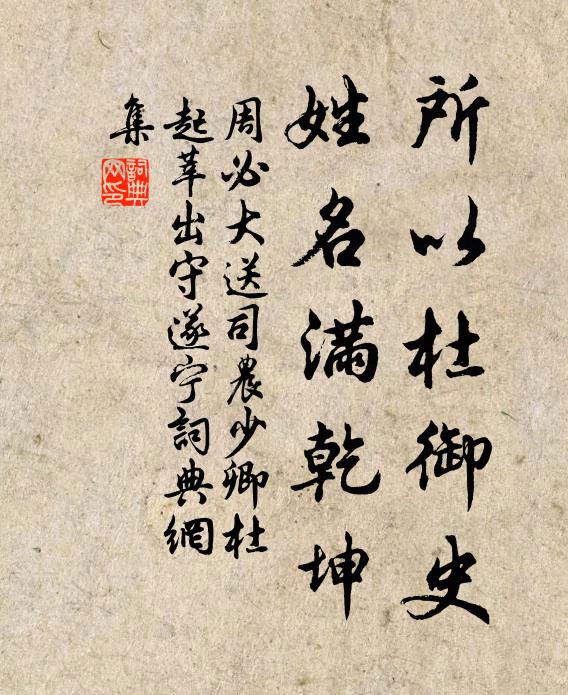 所以杜御史
姓名滿乾坤
周必大送司農少卿杜
起莘出守遂宁詞典網
集
詞典
网印